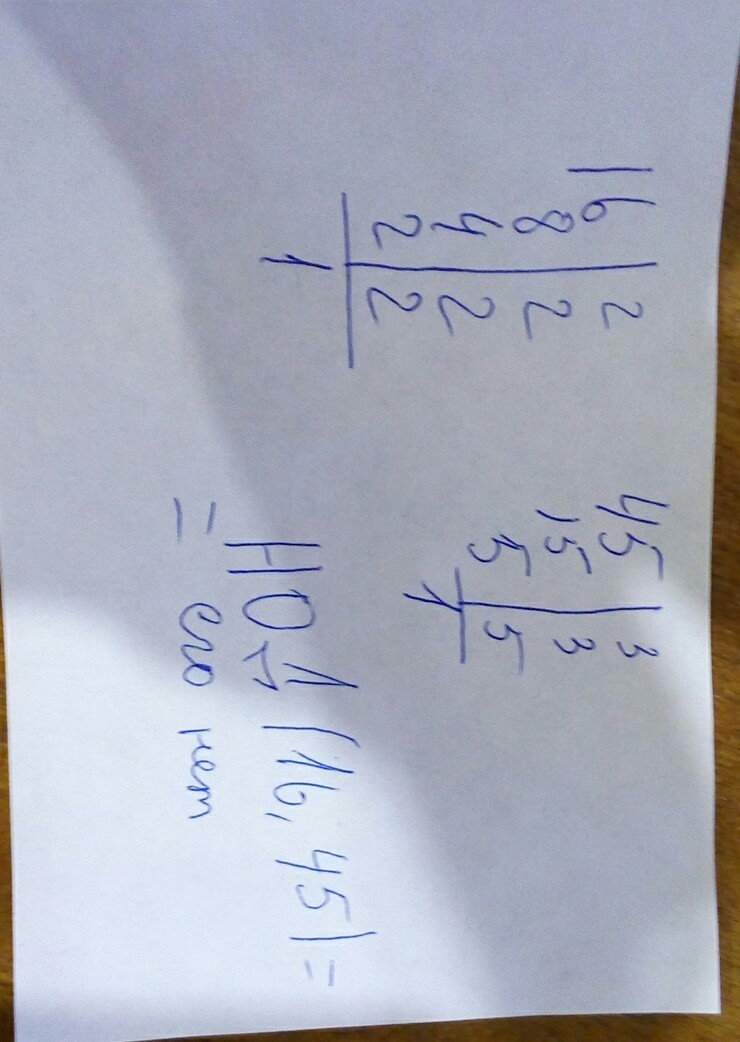 16 | 2
8 | 2
4 | 2
2 | 2
1
45 | 3
15 | 3
5 | 5
1
НОД (16, 45) =
= его нет